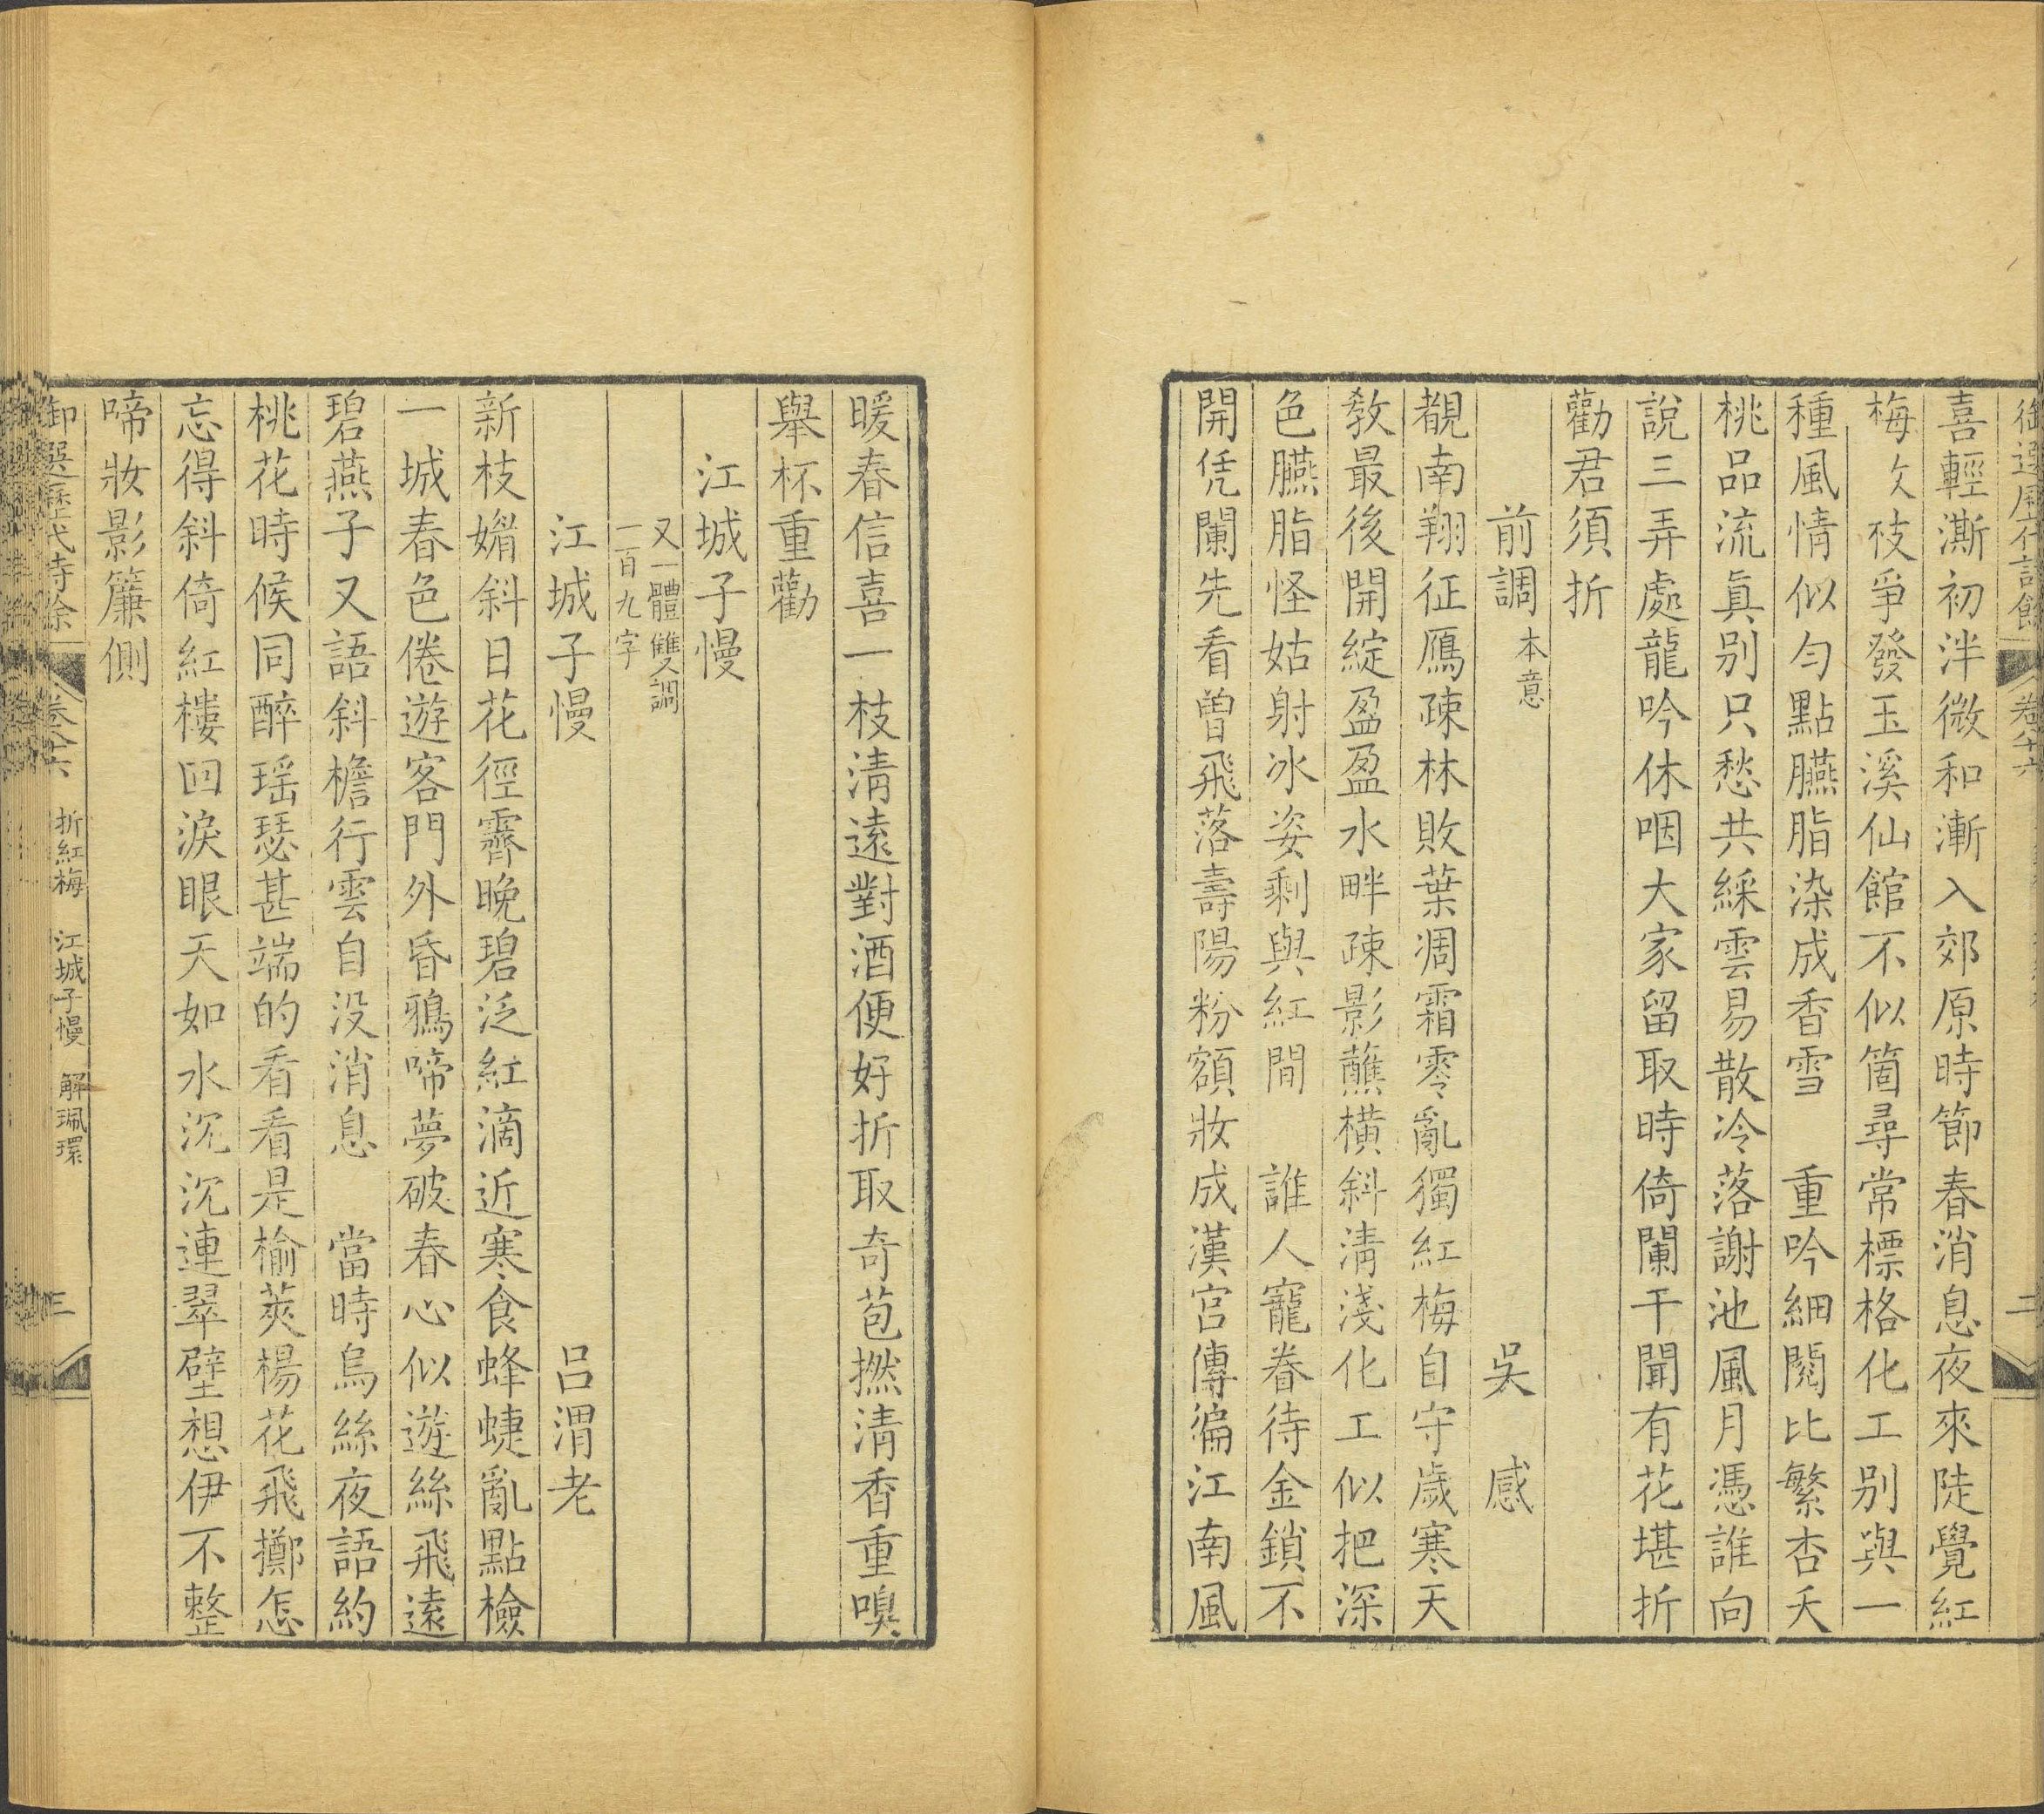 喜輕澌初泮微和漸入郊原時節春消息夜來陡覺紅
梅攵枝爭發玉溪仙館不似箇尋常標格化工别與一
種風情似勻點臙脂染成香雪　重吟細閱比繁杏夭
桃品流眞别只愁共綵雲易散冷落謝池風月憑誰向
說三弄處龍吟休咽大家留取時倚闌干聞有花堪折
勸君須折
前調本意　吳　感
覩南翔征鴈疎林敗葉凋霜零亂獨紅梅自守歲寒天
敎最後開綻盈盈水畔疎影蘸橫斜淸淺化工似把深
色臙脂怪姑射冰姿剩與紅間　誰人寵眷待金鎖不
開凭闌先看曾飛落壽陽粉額妝成漢宫傳徧江南風
暖春信喜一枝淸遠對酒便好折取奇苞撚淸香重嗅
舉杯重勸
江城子慢
又一體雙調
一百九字
江城子慢　呂渭老
新枝媚斜日花徑霽晚碧泛紅滴近寒食蜂蜨亂點檢
一城春色倦遊客門外昏鴉啼夢破春心似遊絲飛遠
碧燕子又語斜檐行雲自没消息　當時烏絲夜語約
桃花時候同醉瑤瑟甚端的看看是榆莢楊花飛擲怎
忘得斜倚紅樓回淚眼天如水沉沉連翠壁想伊不整
啼妝影簾側
卷八十六　折紅梅　江城子慢　解珮環　三